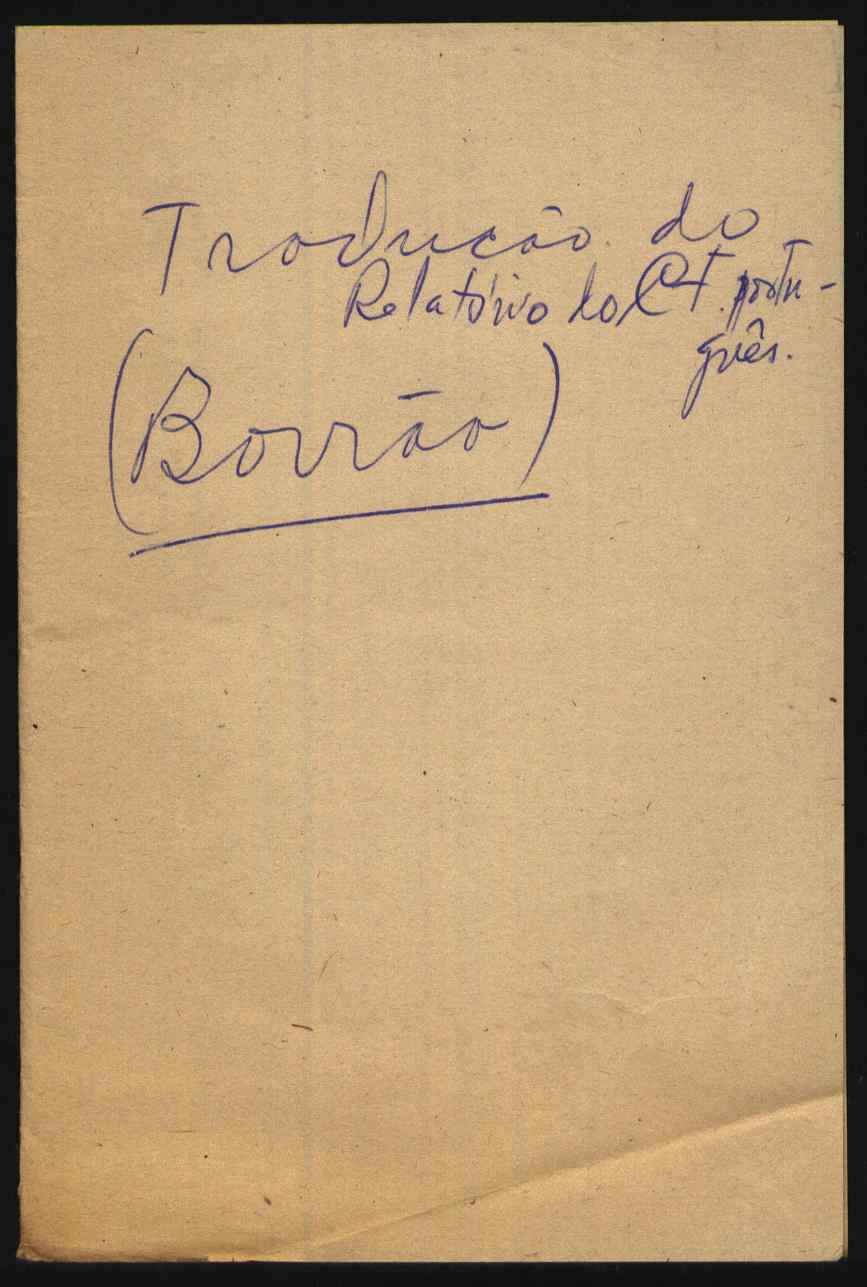 Tradução do
Relatório do CT. portu-
guês.
(Borrão)